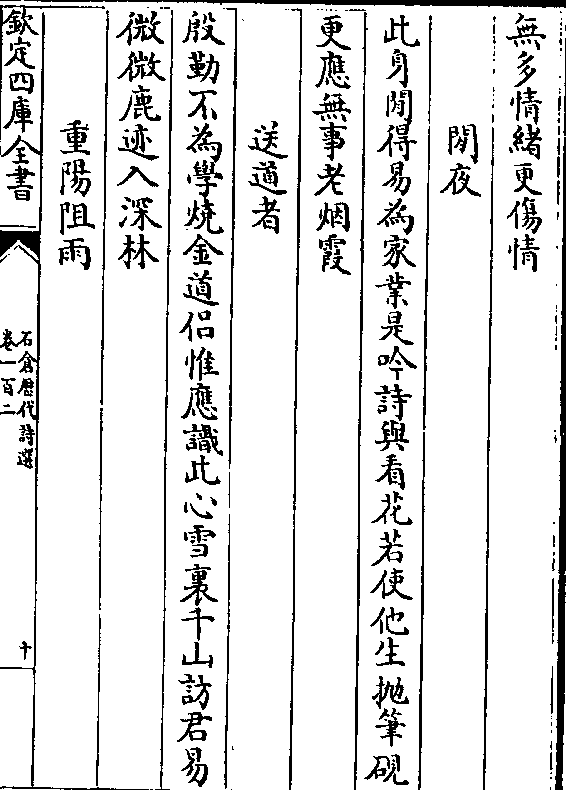 無多情緒更傷情
閒夜
此身閒得易為家業是吟詩與看花若使他生抛筆硯
更應無事老烟霞
送道者
殷勤不為學燒金道侣惟應識此心雪裏千山訪君易
微微鹿迹入深林
重陽阻雨
欽定四庫全書
石倉歷代詩選
卷一百二
十